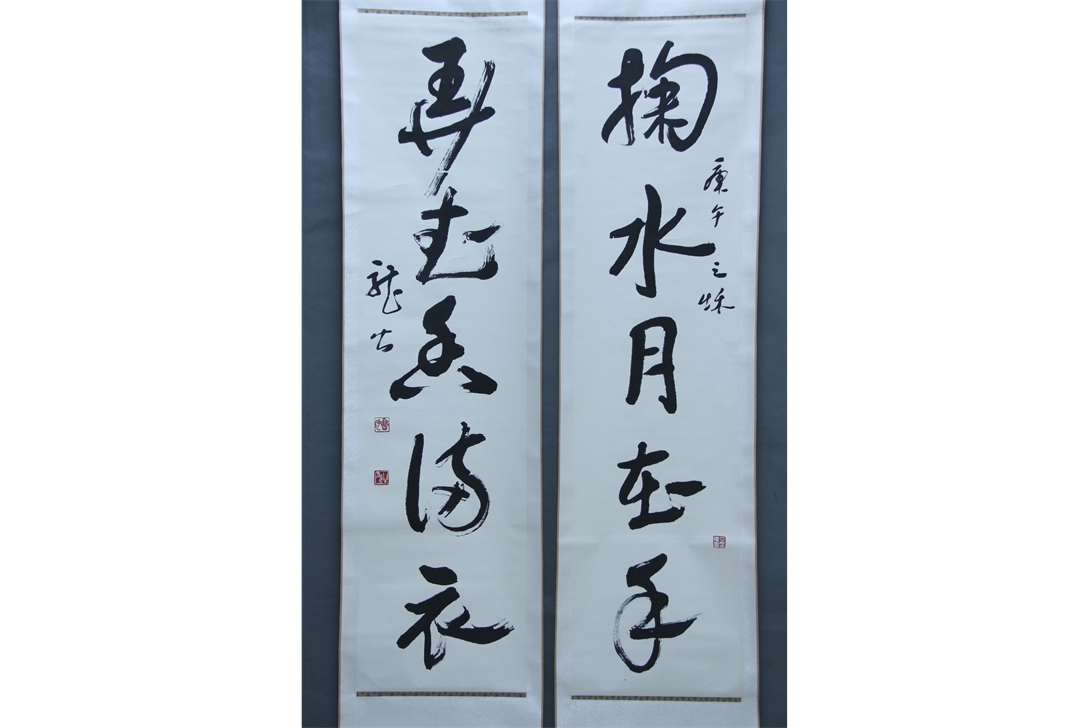 掬水月在手
庚午之秌
弄花香滿衣
龍